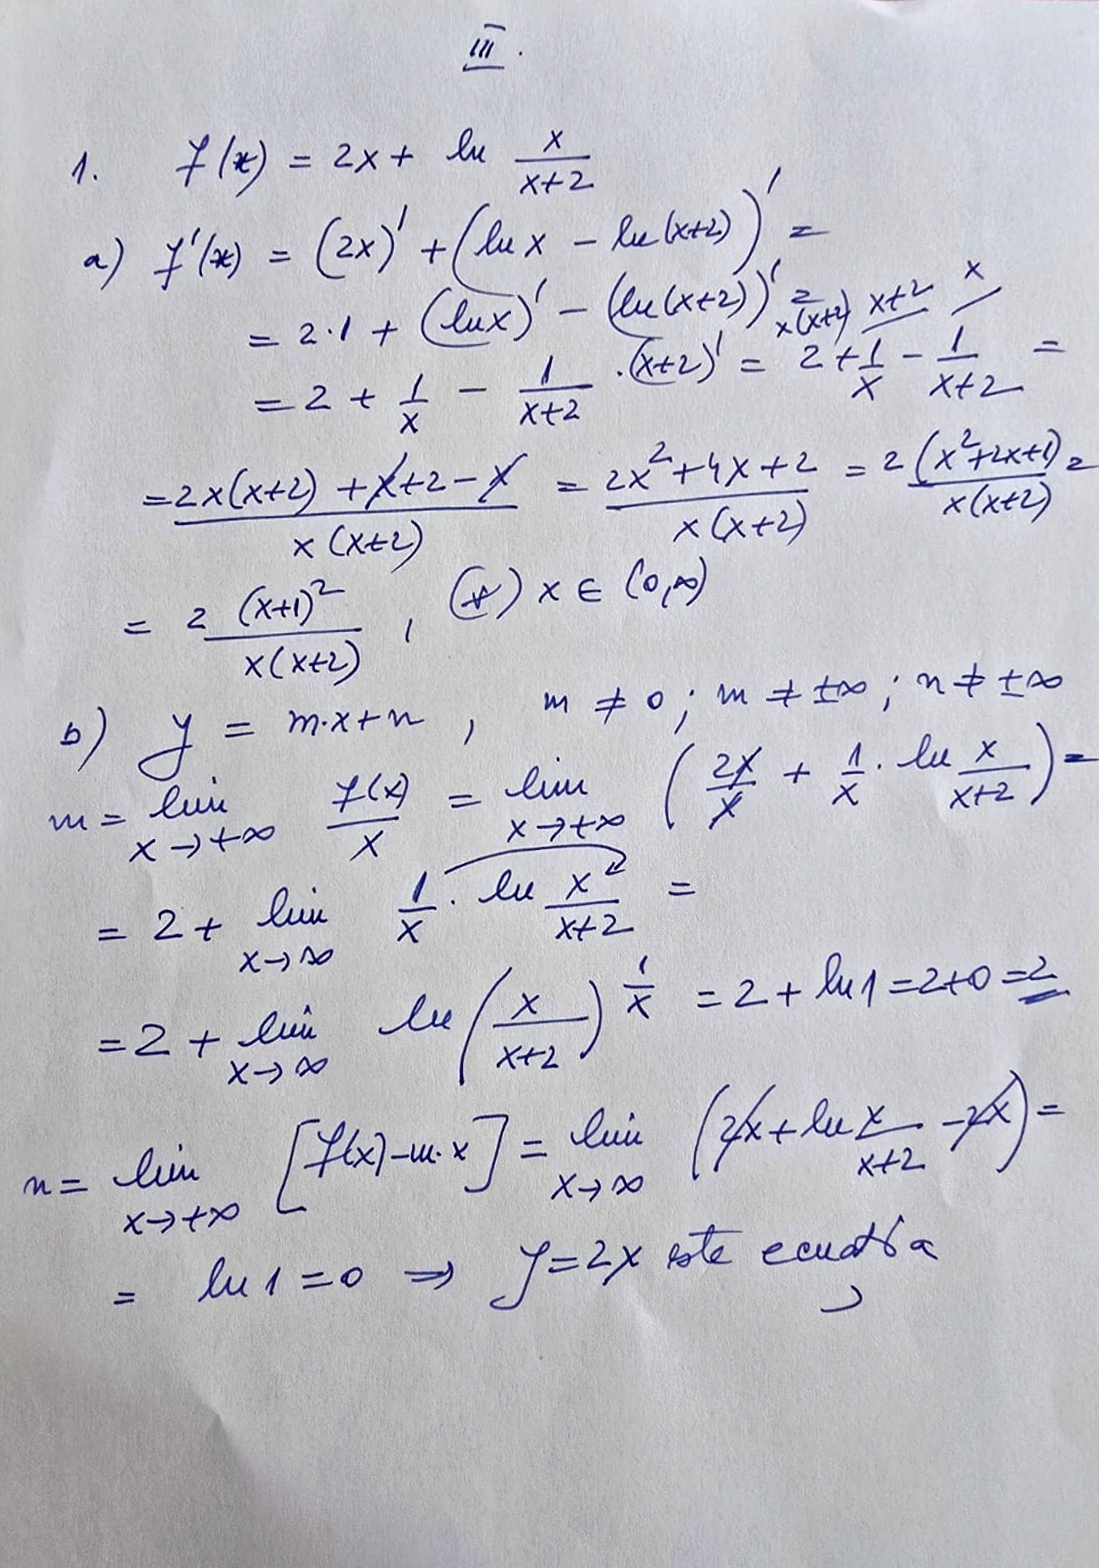 III.
1. f(x) = 2x + ln x/(x+2)
a) f'(x) = (2x)' + (ln x - ln(x+2))' =
= 2·1 + (ln x)' - (ln(x+2))' = x(x+2) x+2 x
= 2 + 1/x - 1/(x+2) · (x+2)' = 2 + 1/x - 1/(x+2) =
= (2x(x+2) + x + 2 - x)/(x(x+2)) = (2x² + 4x + 2)/(x(x+2)) = 2(x² + 2x + 1)/(x(x+2)) =
= 2 (x+1)²/(x(x+2)) , (∀) x ∈ (0,∞)
b) y = m·x + n , m ≠ 0 ; m ≠ ±∞ ; n ≠ ±∞
m = lim x→+∞ f(x)/x = lim x→+∞ (2x/x + 1/x · ln x/(x+2)) =
= 2 + lim x→∞ 1/x · ln x/(x+2) =
= 2 + lim x→∞ ln (x/(x+2))^(1/x) = 2 + ln 1 = 2+0 = 2
n = lim x→+∞ [f(x) - m·x] = lim x→∞ (2x + ln x/(x+2) - 2x) =
= ln 1 = 0 ⇒ y = 2x este ecuația